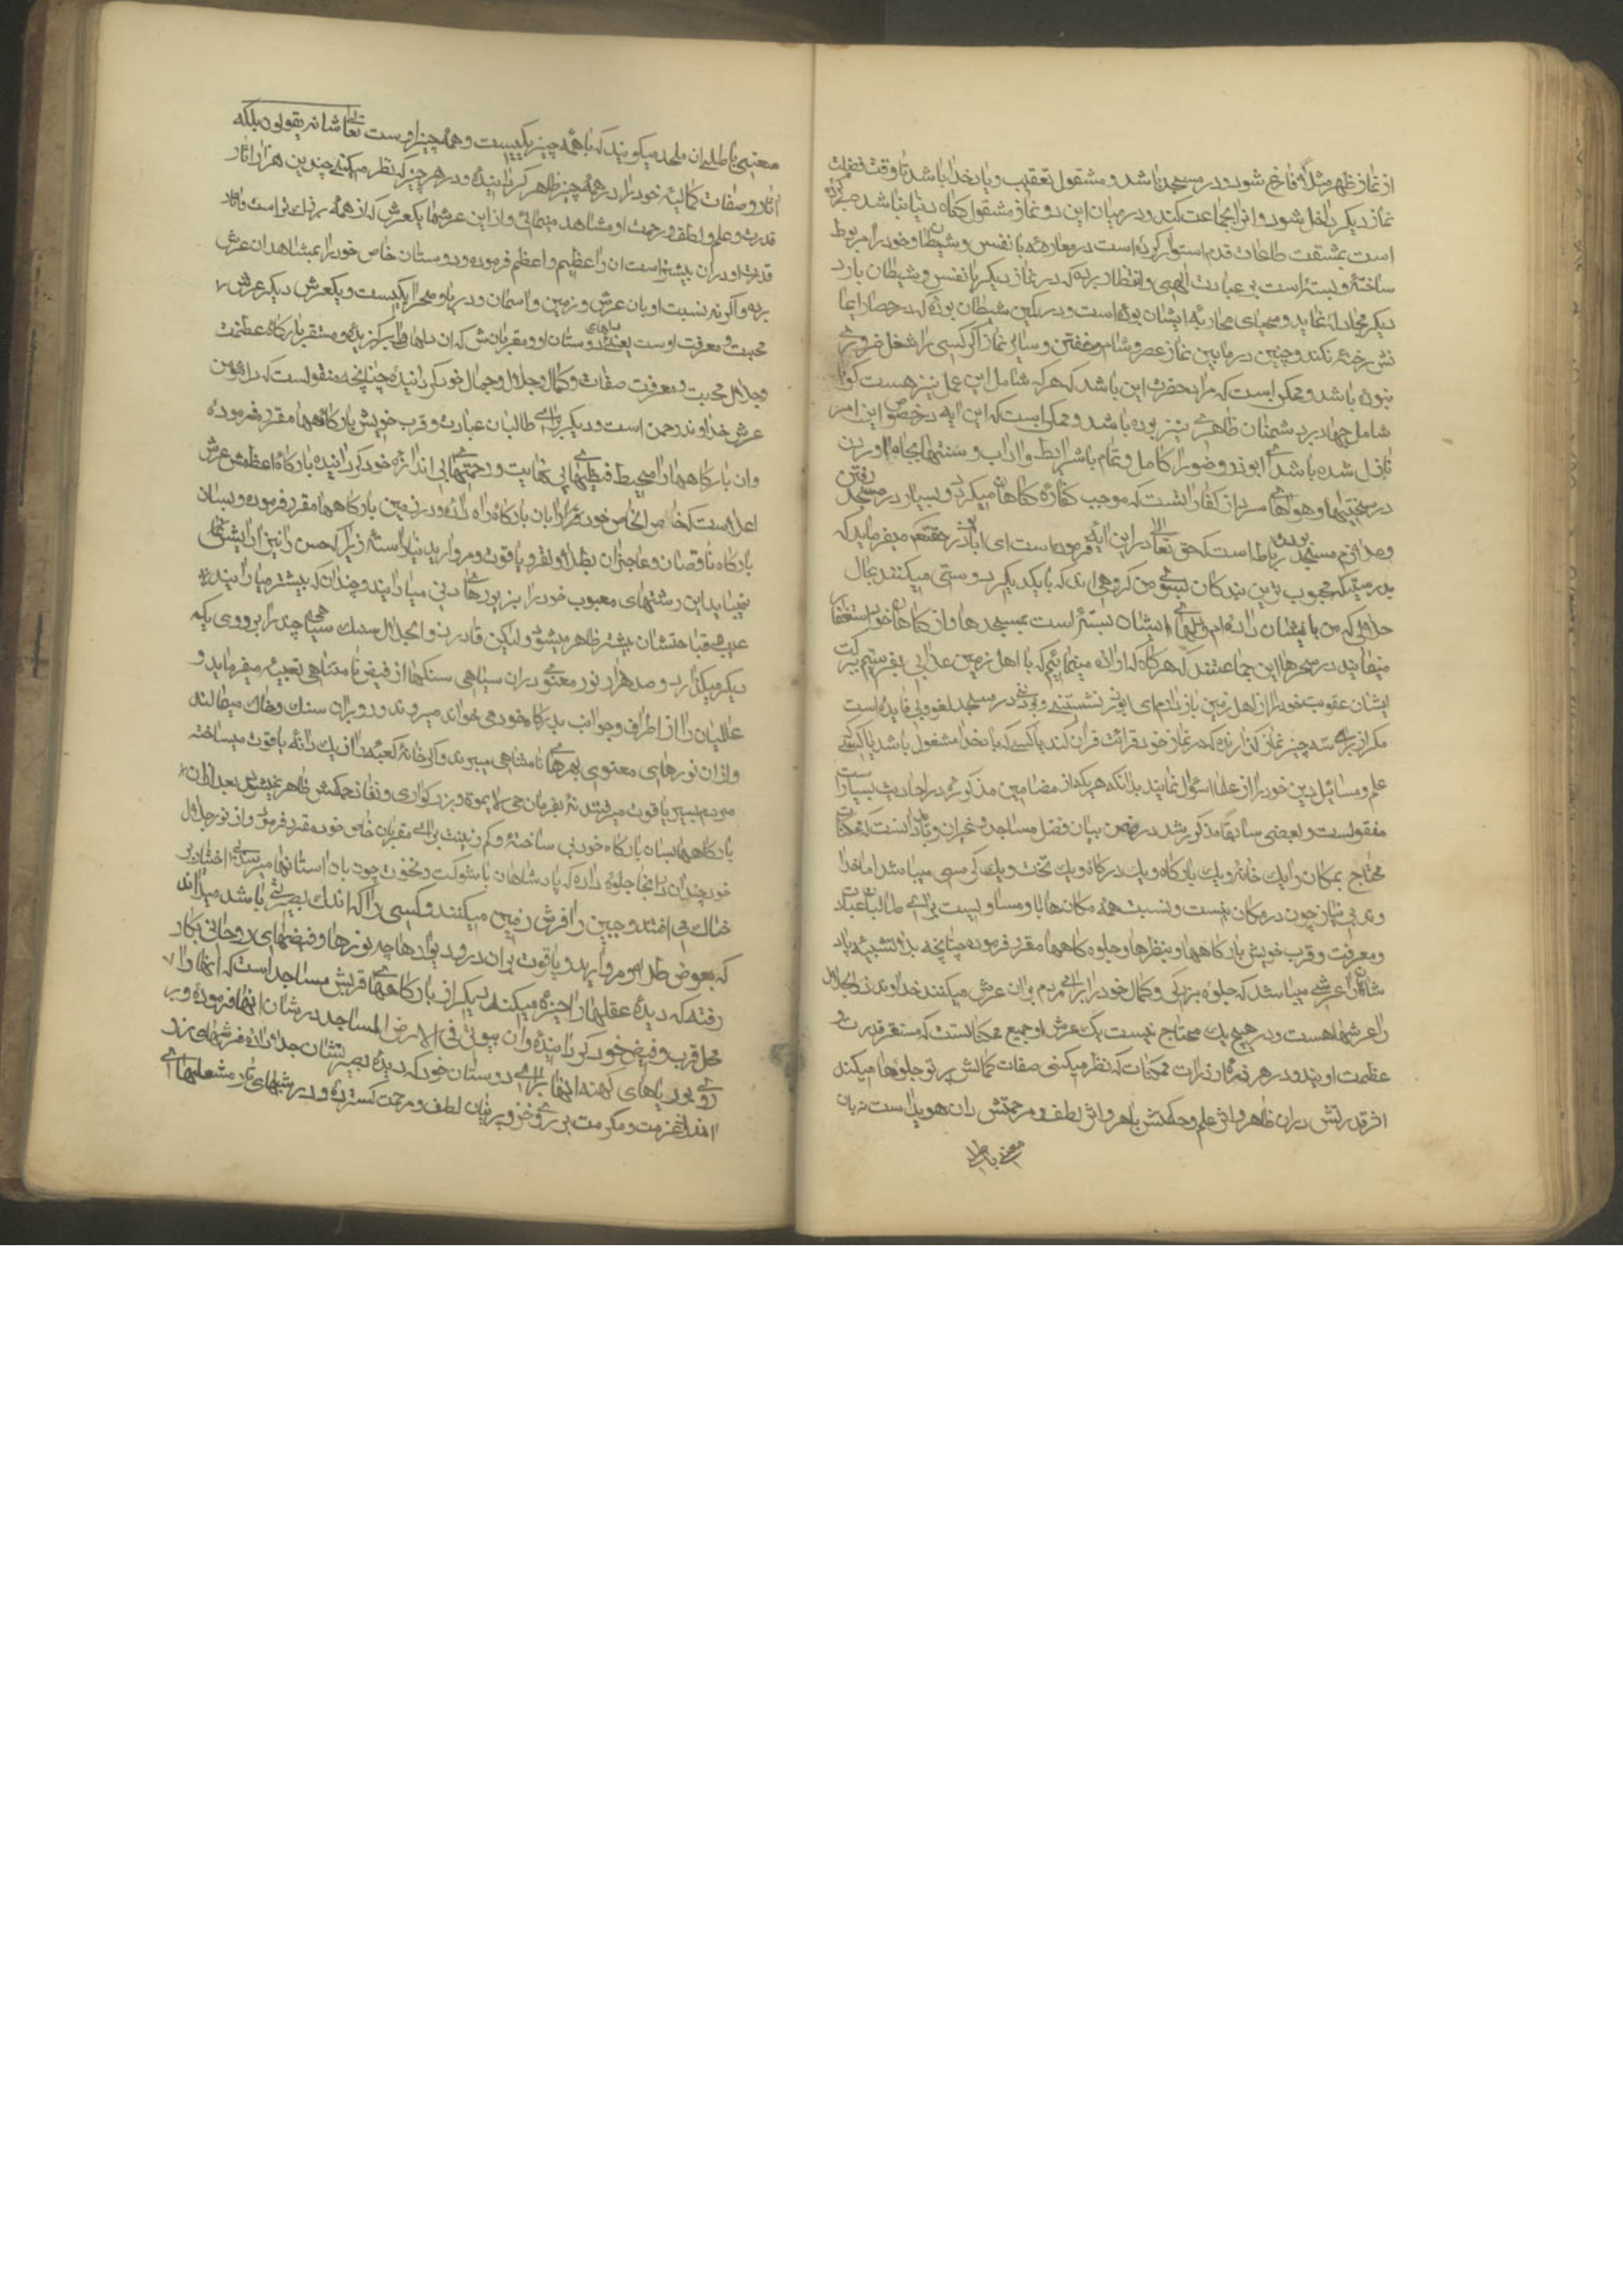 از نماز ظهر مثلا که فارغ شود و در مسجد باشد و مشغول تعقیب و یاد خدا باشد تا وقت فضیلت
نماز دیگر داخل شود و انرا بجماعت کند و در میان این دو نماز مشغول کاه دنیا نباشد صبر کرده
است بمشقت طاعات قدم استوار کرده است در معارضه با نفس و شیطان و خود را مربوط
ساخته و بسته است بر عبادت الهی و انتظار برده که در نماز دیگر با نفس و شیطان بار
دیگر مجادله نماید و مهیای محاربه ایشان بوده است و در کمین شیطان بوده که در حصار ایما
نش رخنه نکند و چنین در مابین نماز عصر و شام و خفتن و سایر نماز اگر کسی را شغل ضروری
نبوده باشد و ممکن است که مراد حضرت این باشد که هر که شامل این عمل نیز هست گو با
شامل جهاد بر دشمنان ظاهری نیز بوده باشد و ممکن است که این ایه در خصوص این امر
نازل شده باشد ای ابوذر وضو را کامل و تمام با شرایط و اداب و سنتها بجا اوردن
در سختیها و هواهای سرد از کفارانست که موجب کفاره گناهان میگردد و بسیار در مسجد رفتن
و ملازم مسجد بودن رباط است که حق تعالی در این ایه فرموده است ای اباذر حقتعالی میفرماید که
بدرستیکه محبوب ترین بندگان بسوی من گروهی اند که با یکدیگر دوستی میکنند بمال
حلالی که من بایشان داده ام و دلهای ایشان بسته است بمسجدها و از گناهان خود استغفار
مینمایند در سحرها این جماعتند که هرگاه که اراده مینمائیم که با اهل زمین عذابی بفرستیم ببرکت
ایشان عقوبت خود را از اهل زمین باز دارم ای ابوذر نشستنی و بودنی در مسجد لغو و بی فایده است
مگر از برای سه چیز نماز گذارنده که در نماز خود قرائت قران کند یا کسیکه با یاد خدا مشغول باشد یا کسیکه
علم و مسائل دین خود را از علما سئوال نمایند بدانکه هر یک از مضامین مذکوره در احادیث بسیار است
منقولست و بعضی سابقا مذکور شد در ضمن بیان فضل مساجد و غیر ان و باید دانست که ممکنات
محتاج بمکان را یک خانه و یک بارگاه و یک درگاه و یک تخت و یک کرسی میباشد اما خدا
وند بی نیاز چون در مکان نیست و نسبت همه مکانها باو مساویست برای طالبان عبادت
و معرفت و قرب خویش بارگاهها و منظرها و جلوه گاهها مقرر فرموده چنانچه بلا تشبیه پاد
شاهان را عرشی میباشد که جلوه بزرگی و کمال خود را برای مردم بر ان عرش میکنند خداوند ذو الجلال
را عرشها هست و در هیچ یک محتاج نیست یک عرش او جمیع ممکناتست که مستقر قدرت و
عظمت اویند و در هر ذره از ذرات ممکنات که نظر میکنی صفات کمالش پرتو جلوها میکند
اثر قدرتش در ان ظاهر و اثر علم و حکمتش باهر و اثر لطف و مرحمتش در ان هویداست نه بان
معنی باطل
معنی باطلی ان ملحد میگویند که با همه چیز یکیست و همه چیز اوست تعالی شانه یقولون بلکه
اثار و صفات کمالیه خود را در همه چیز ظاهر گردانیده و در هر چیز که نظر میکنی چندین هزار اثار
قدرت و علم و لطف و رحمت او مشاهد مینمائی و از این عرشها یکعرش که از همه بزرگ تر است و اثار
قدرت او در ان بیشتر است ان را عظیم و اعظم فرموده و دوستان خاص خود را بمشاهد ان عرش
برده و اگر نه نسبت او بان عرش و زمین و اسمان و دریا و صحرا یکیست و یکعرش دیگر عرش
محبت و معرفت اوست یعنی دلهای دوستان او و مقربانش که ان دلها را برگزیده و مستقر بارگاه عظمت
وجلال محبت و معرفت صفات و کمال و جلال و جمال خود گردانیده چنانچه منقولست که دل مومن
عرش خداوند رحمن است و دیگر برای طالبان عبادت و قرب خویش بارگاهها مقرر فرموده
وان بارگاهها را محیط فیضهای بی نهایت و رحمتهای بی اندازه خود گردانیده بارگاه اعظمش عرش
اعلاست که خاص الخاص خود را بان بارگاه راه داده و در زمین بارگاهها مقرر فرموده و بسان
بارگاه ناقصان و عاجزان بطلا و نقره و یاقوت و مروارید نیاراسته زیرا که حسن را نیز ارایش نمی
یجیباید این رشتهای معیوب خود را بزیورهای دنی میارایند و چندان که بیشتر میارایند
عیب و قباحتشان بیشتر ظاهر میشود و لیکن قادر ذو الجلال سنک سیاهی چند را بر روی یکد
یکر میگذارد و صد هزار نور معنوی در ان سیاهی سنگها از فیض نامتناهی تعبیه میفرماید و
عالمیان را از اطراف و جوانب بدرگاه خود می خواند میروند و رو بر ان سنک و خاک میمالند
و از ان نورهای معنوی بهرهای نامتناهی میبرند و اگر خانه کعبه را از یک دانه یاقوت میساخت
مردم بسیر یاقوت میرفتند نه بفرمان حی لا یموت و بزرگواری و نفاذ حکمش ظاهر نمیشد بعد از ان
بارگاهها بسان بارگاه خود بی ساخته و کم زینت برای مقربان خاص خود مقرر فرمود و از نور جلال
خود چندان در انجا جلوه داده که پادشاهان با شوکت و نخوت چون بان استانها میرسند بی اختیار بر
خاک می افتند و جبین را فرش زمین میکنند و کسی را که اندک بصیرتی باشد میداند
که بعوض طلا و مروارید و یاقوت بر ان در و دیوارها چه نورها و فیضهای روحانی بکار
رفته که دیده عقلها را خیره میکند دیگر از بارگاههای قربش مساجد است که انها را
محل قرب و فیض خود گردانیده و ان بیوتی فی الارض المساجد در شان انها فرموده و بر
روی بوریاهای کهنه انها برای دوستان خود که دیده بصیرتشان جلا داده فرشهای زر
اندر عزت و مکرمت بر روی خز و پرنیان لطف و مرحمت گسترده و در شبهای تار مشعلهای